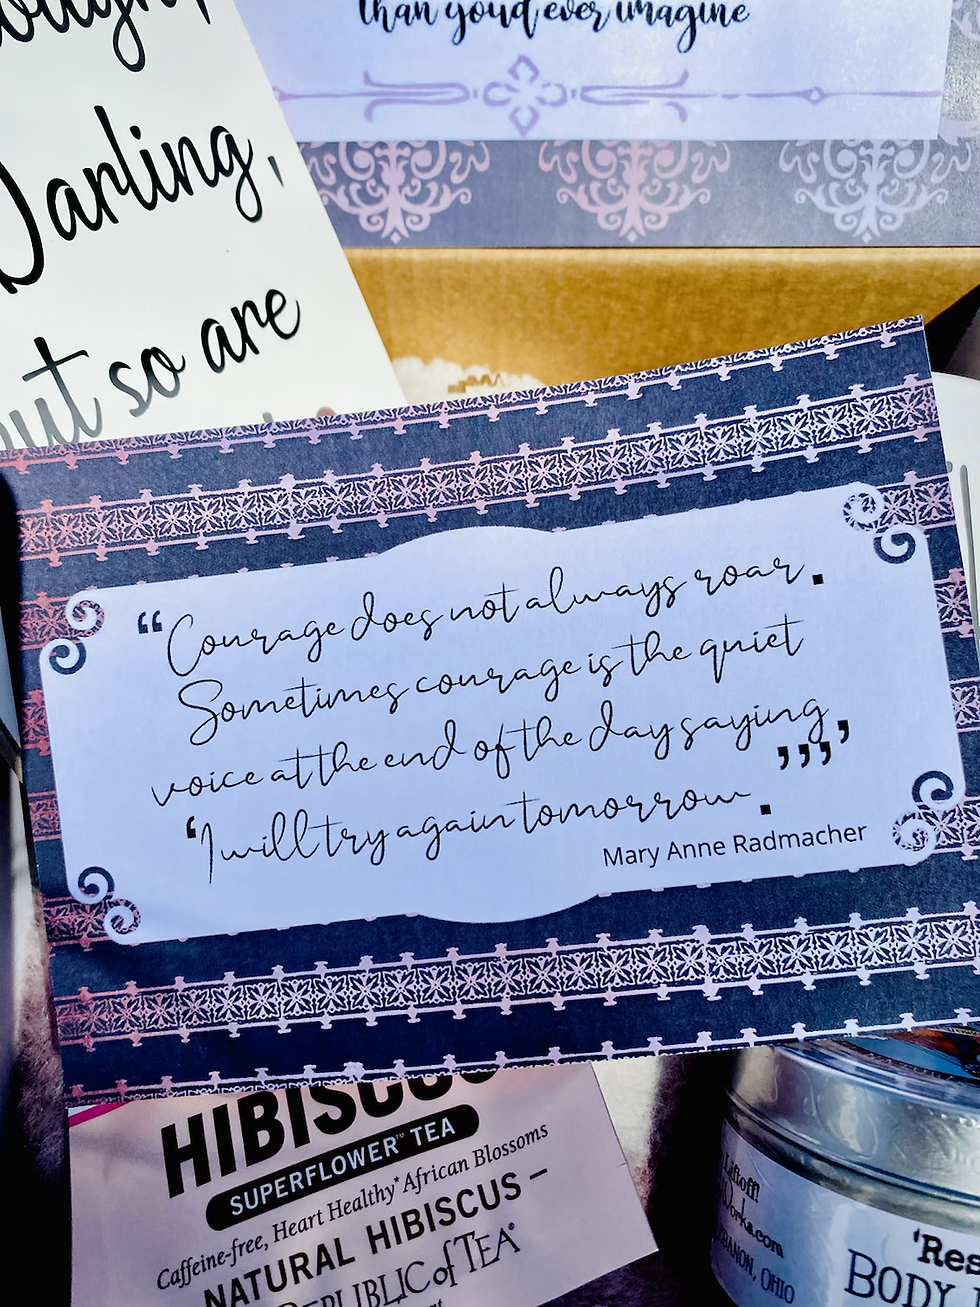 than you'd ever imagine
Darling,
but so are
“Courage does not always roar.
Sometimes courage is the quiet
voice at the end of the day saying,
‘I will try again tomorrow.’”
Mary Anne Radmacher
HIBISCUS
SUPERFLOWER™ TEA
Caffeine-free, Heart Healthy* African Blossoms
NATURAL HIBISCUS –
REPUBLIC of TEA®
Liftoff!
Works.com
LEBANON, OHIO
'Res
BODY